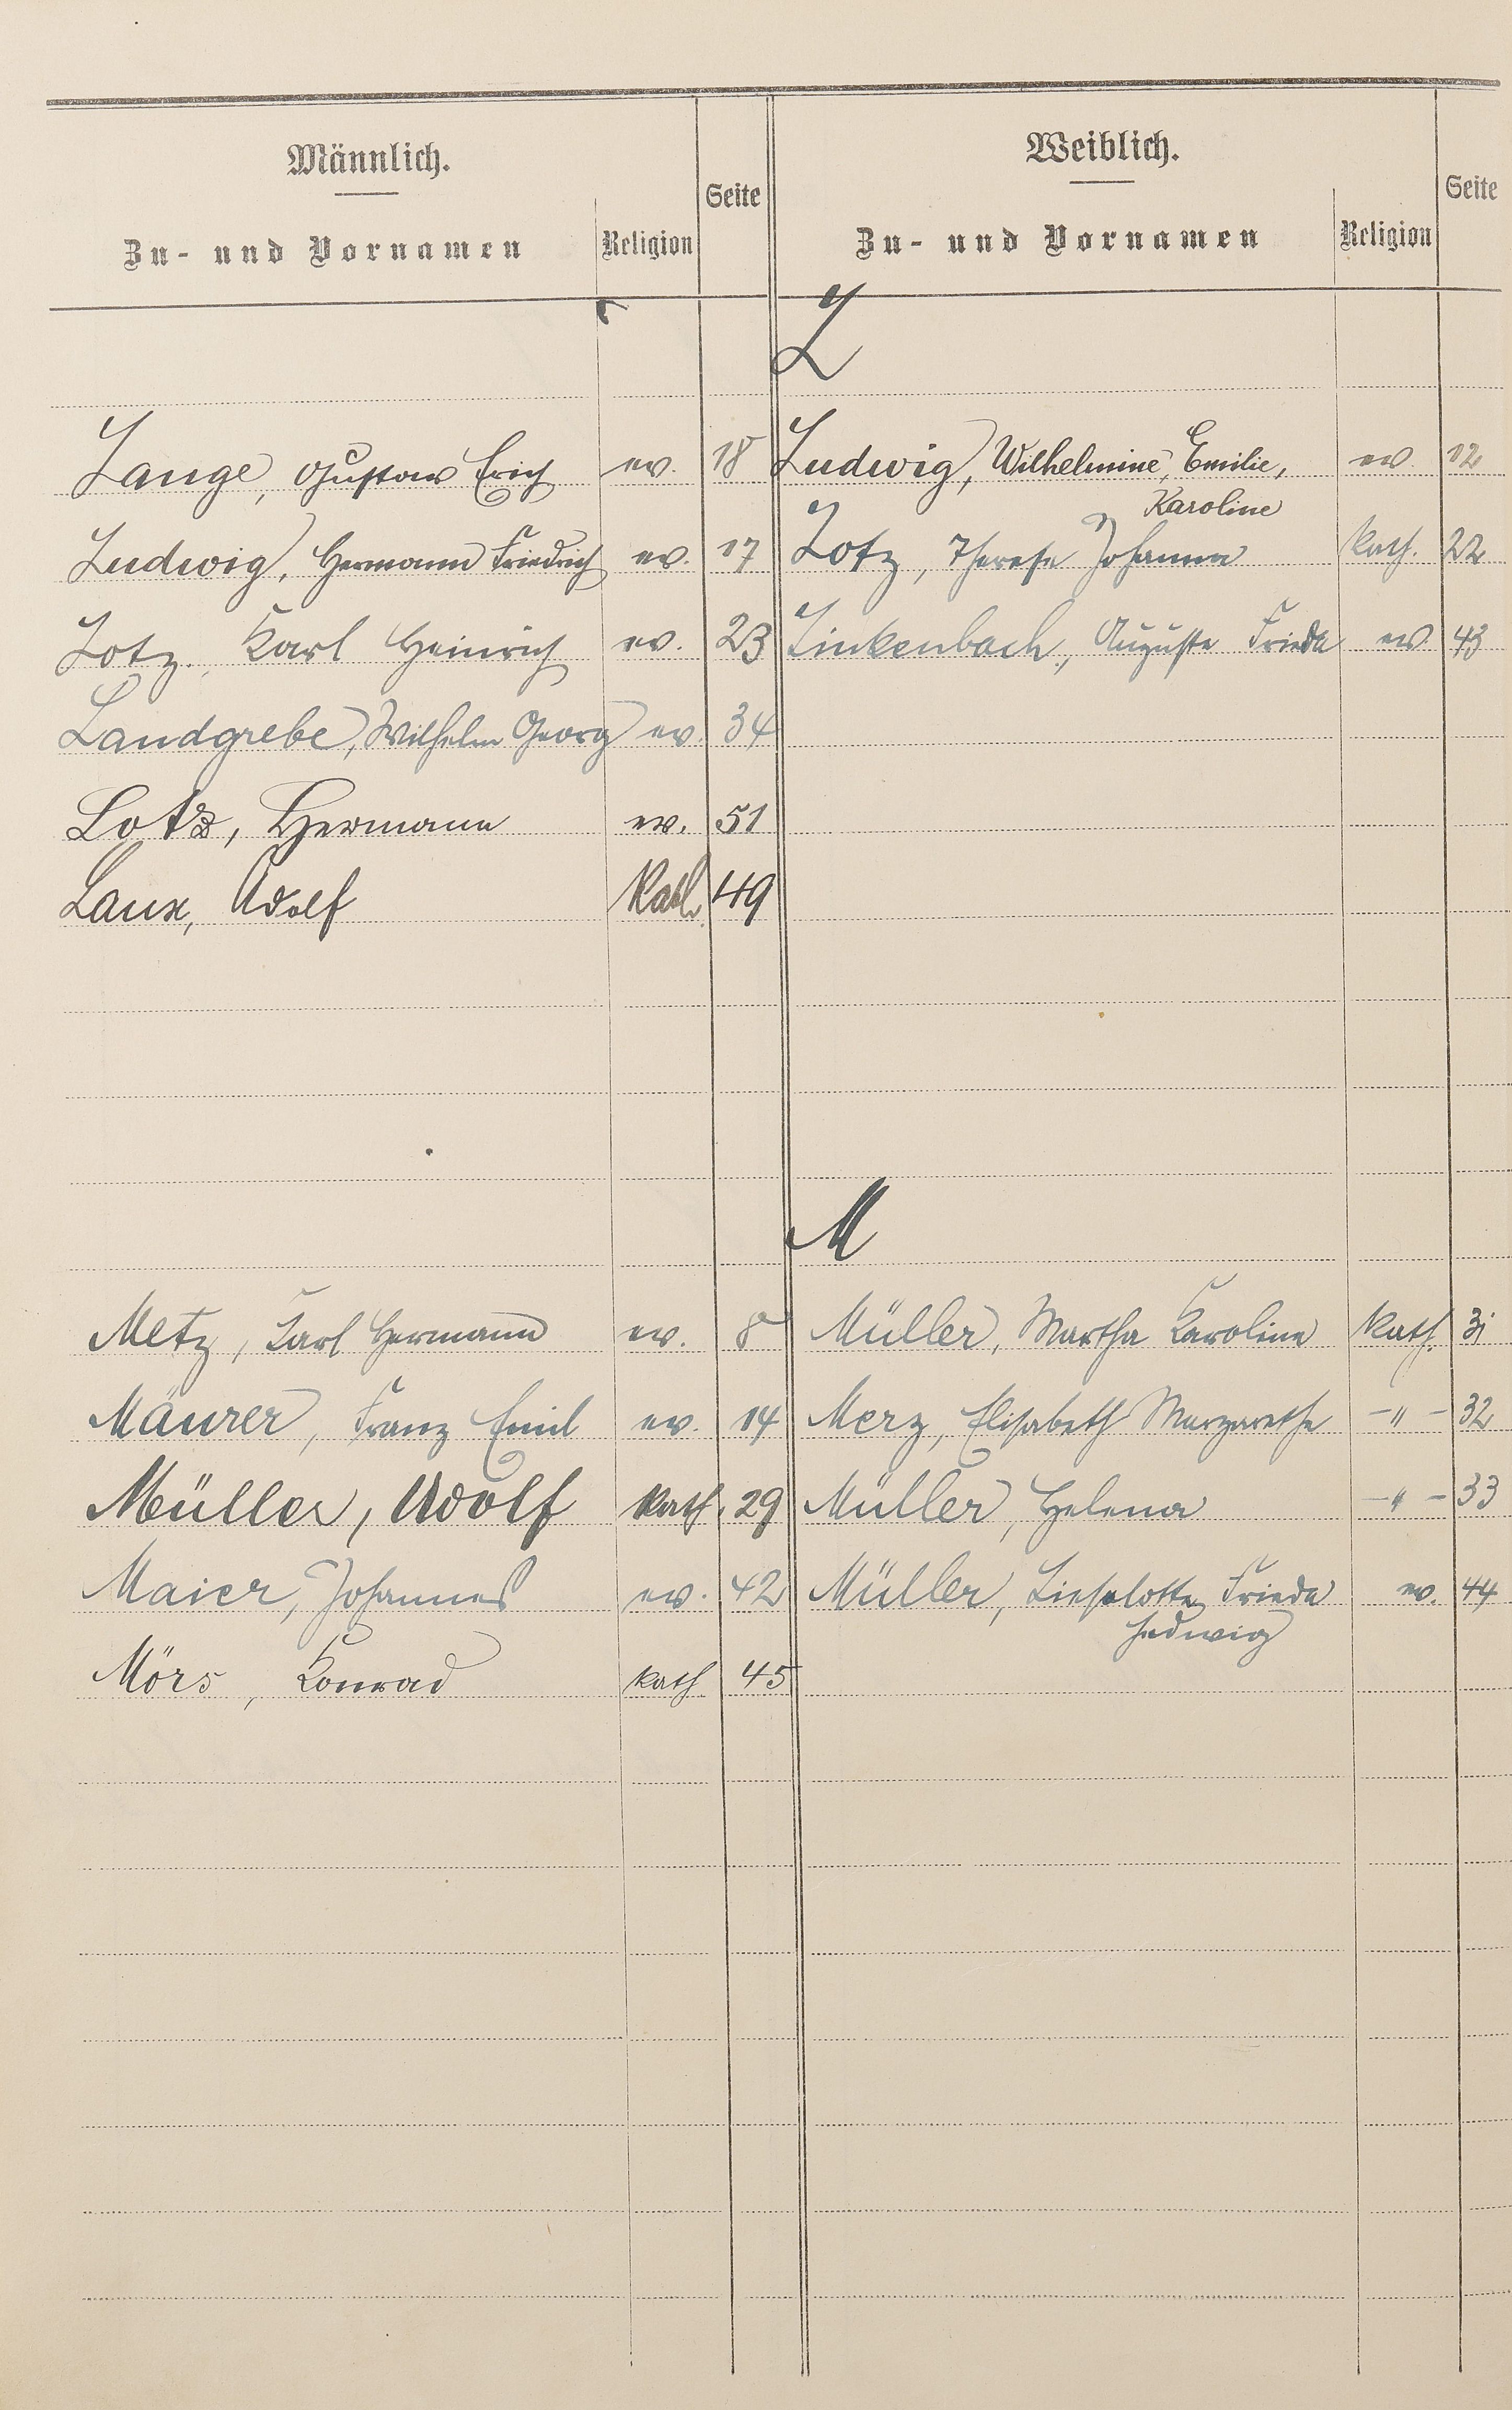 Männlich.
Zu- und Vornamen Religion Seite
Weiblich.
Zu- und Vornamen Religion Seite
L
Lange, Gustav Erich ev. 18 Ludwig, Wilhelmine, Emilie, ev 12
Karoline
Ludwig, Hermann Friedrich ev. 17 Lotz, Therese Johanna Kath. 22
Lotz, Karl Heinrich ev. 23 Linkenbach, Auguste Frieda ev 43
Landgrebe, Wilhelm Georg ev. 34
Lotz, Hermann ev. 51
Laux, Adolf Kath. 49
M
Metz, Karl Hermann ev. 8 Müller, Martha Karoline Kath. 31
Mäurer, Franz Emil ev. 14 Merz, Elisabeth Margarethe -"- 32
Müller, Adolf Kath. 29 Müller, Helena -"- 33
Maier, Johannes ev. 42 Müller, Lieselotte Frieda ev. 44
Hedwig
Mörs, Konrad Kath 45